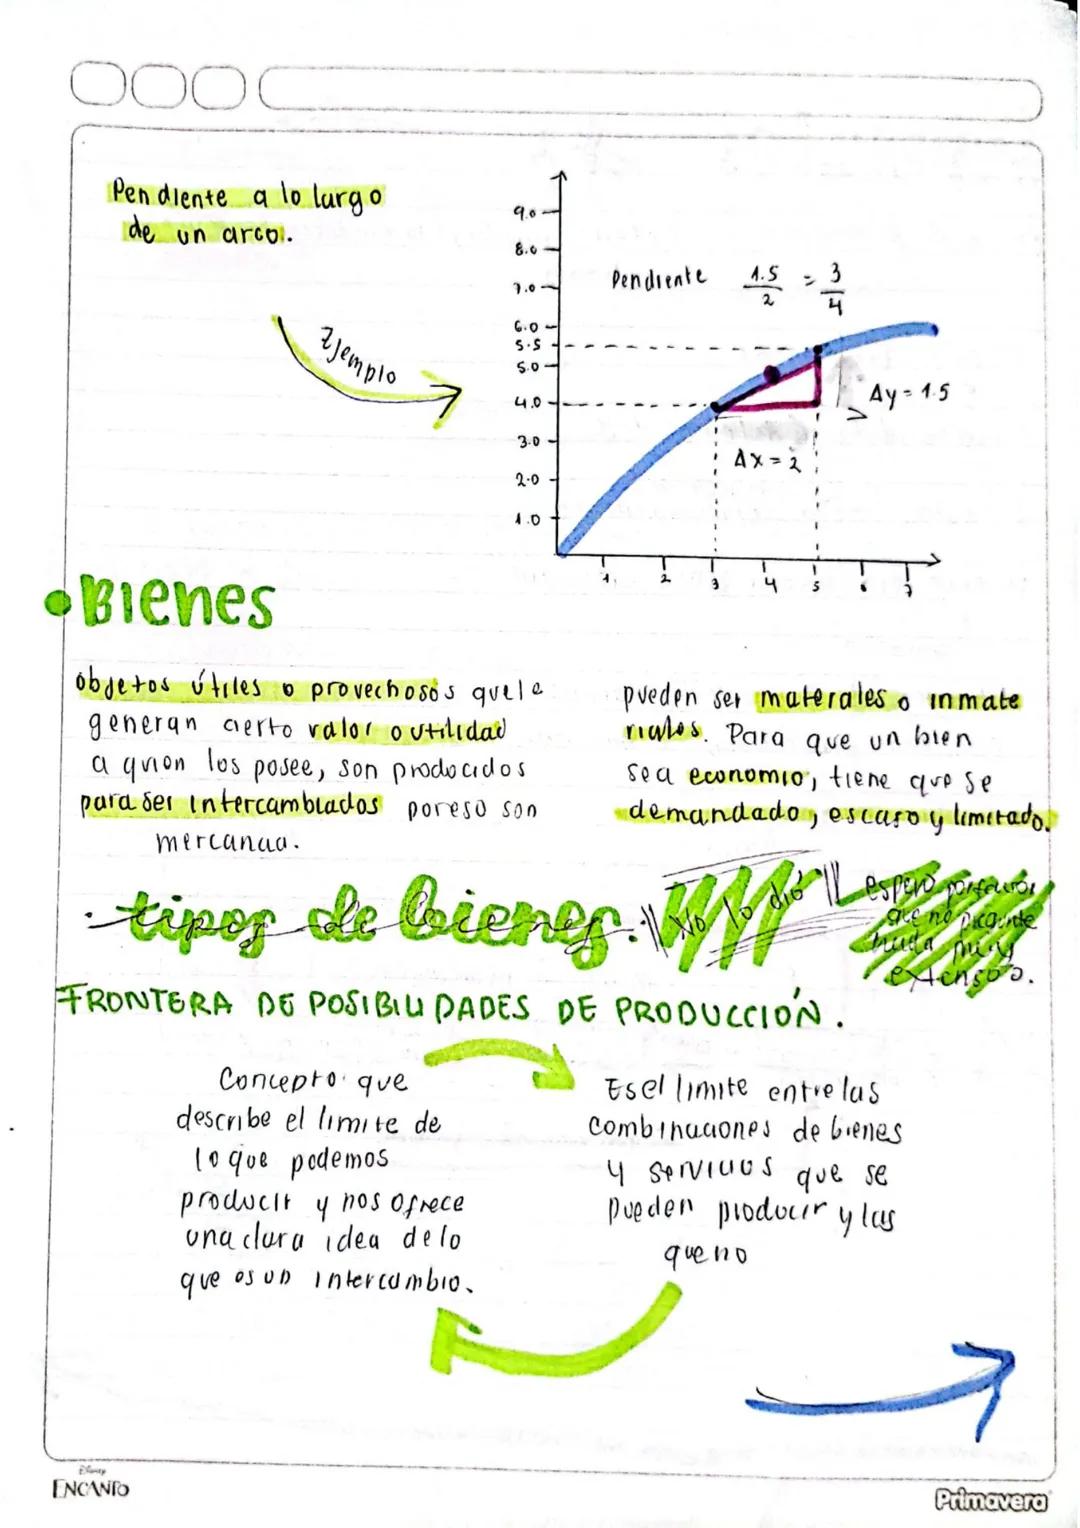 Pendiente a lo largo
de un arco.
Ejemplo
9.0
8.0
7.0
6.0
5.5
5.0
4.0
3.0
2.0
1.0
Pendiente 1.5/2 = 3/4
Δy = 1.5
Δx = 2
1 2 3 4 5 6 7
• Bienes
objetos útiles o provechosos que le
generan cierto valor o utilidad
a quien los posee, son producidos
para ser intercambiados por eso son
mercancia.
pueden ser materales o inmate
riales. Para que un bien
sea economio, tiene que se
demandado, escaso y limitado.
• tipos de bienes. || No lo dió ||
espero porfavor
que no pregunte
nada muy
extenso.
FRONTERA DE POSIBILIDADES DE PRODUCCIÓN.
Concepto que
describe el limite de
lo que podemos
producir y nos ofrece
una clara idea de lo
que es un intercambio.
Es el limite entre las
combinaciones de bienes
y servicios que se
pueden producir y las
que no
Disney
ENCANTO
Primavera